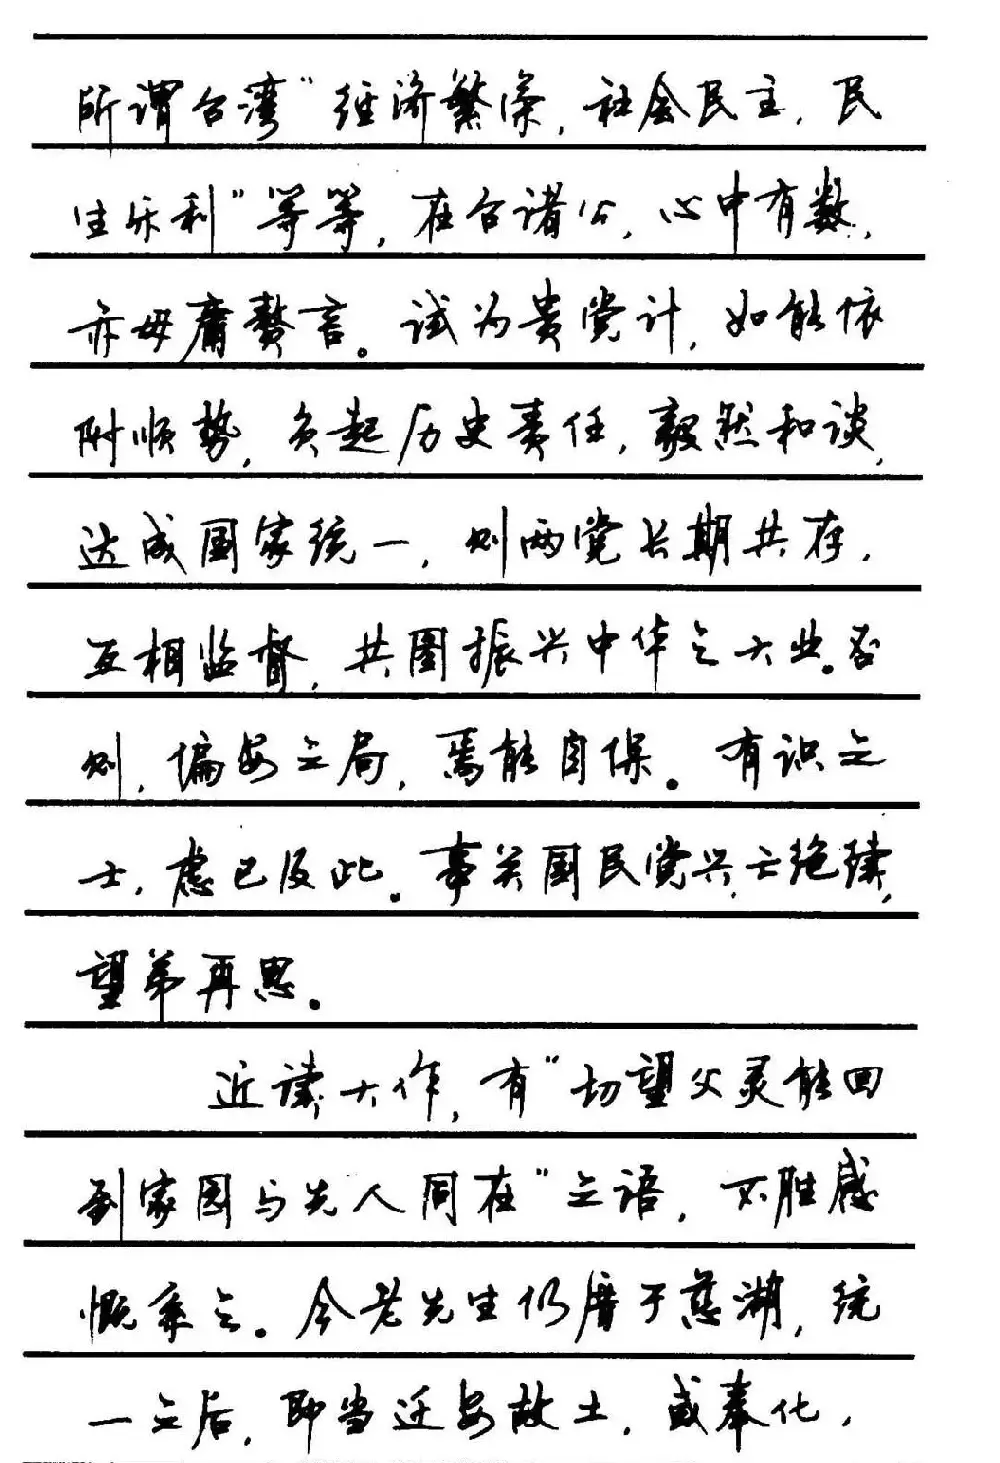 所谓台湾“经济繁荣，社会民主，民
生乐利”等等，在台诸公，心中有数，
亦毋庸赘言。试为贵党计，如能依
时顺势，负起历史责任，毅然和谈，
达成国家统一，则两党长期共存，
互相监督，共图振兴中华之大业。否
则，偏安之局，焉能自保。有识之
士，虑已及此。事关国民党兴亡绝续，
望弟再思。
近读大作，有“切望父灵能回
到家园与先人同在”之语，不胜感
慨系之。今老先生仍厝于慈湖，统
一之后，即当迁安故土，或奉化，